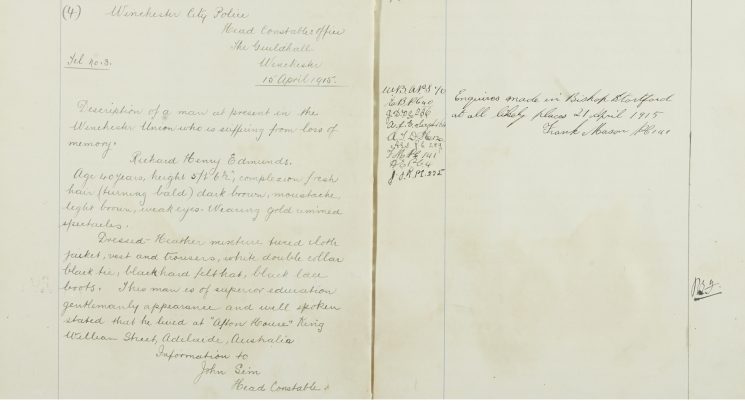 (4) Winchester City Police
Head Constables Office
The Guildhall
Winchester
Tel no. 3.
15 April 1915.
Description of a man at present in the
Winchester Union who is suffering from loss of
memory.
Richard Henry Edmunds.
Age 40 years, height 5/ft 6½", complexion fresh
hair (turning bald) dark brown, moustache
light brown, weak eyes. Wearing gold rimmed
spectacles.
Dressed - Heather mixture tweed cloth
jacket, vest and trousers, white double collar
black tie, black hard felt hat, black lace
boots. This man is of superior education
gentlemanly appearance and well spoken
stated that he lived at "Afton House" King
William Street, Adelaide, Australia
Information to
John Sim
Head Constable.
Enquires made in Bishop Stortford
at all likely places 21 April 1915
Frank Mason